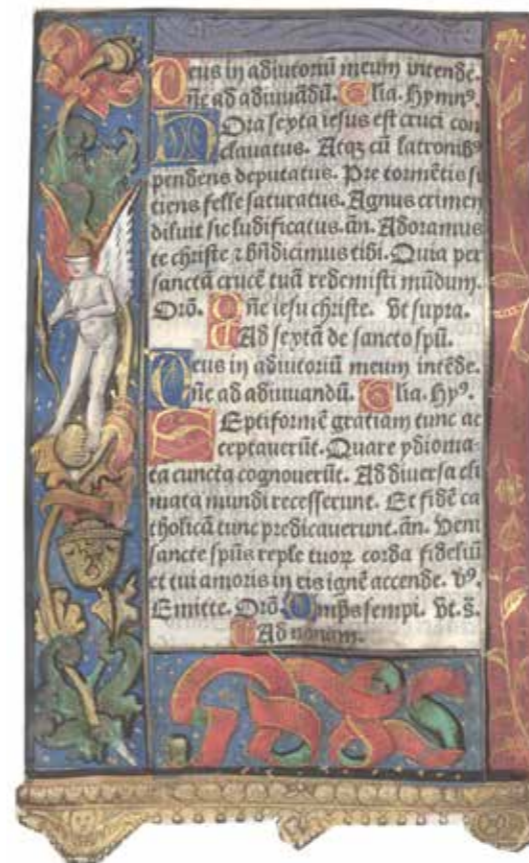 Deus in adiutoriũ meum intende.
Dñe ad adiuuãdũ. Glia. Hymnꝰ.
Hora sexta iesus est cruci con
clauatus. Atqꝫ cũ latronibꝰ
pendens deputatus. Pre tormẽtis si
tiens felle saturatus. Agnus crimen
diluit sic ludificatus. añ. Adoramus
te christe ⁊ bñdicimus tibi. Quia per
sanctã crucẽ tuã redemisti mũdum.
Orõ. Dñe iesu christe. Vt supra.
Ad sextã de sancto spũ.
Deus in adiutoriũ meum intẽde.
Dñe ad adiuuandũ. Glia. Hyꝰ.
Septiformẽ gratiam tunc ac
ceptauerũt. Quare ydioma-
ta cuncta cognouerũt. Ad diuersa cli
mata mundi recesserunt. Et fidẽ ca
tholicã tunc predicauerunt. añ. Veni
sancte spũs reple tuoꝝ corda fideliũ
et tui amoris in eis ignẽ accende. Vꝰ.
Emitte. Orõ. Omps sempi. Vt. s̃.
Ad nonam.